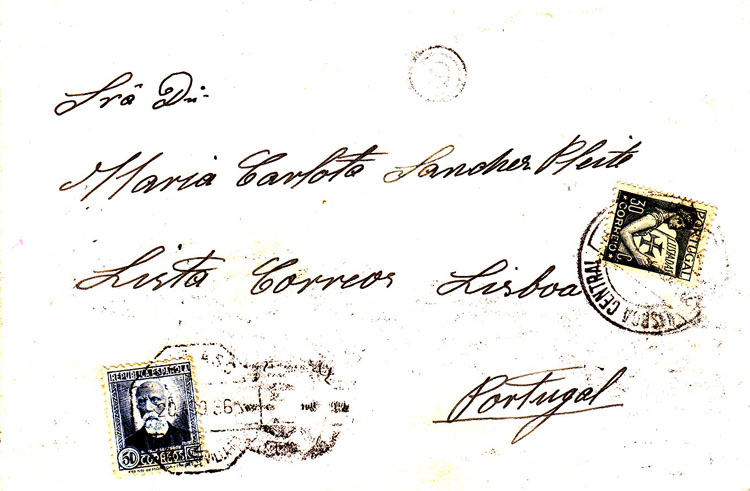 Srã Dn.
Maria Carlota Sanchez Pleite
Lista Correos Lisboa
Portugal
PORTUGAL
LUSIADAS
CORREIO
30 C.
LISBOA CENTRAL
REPUBLICA ESPAÑOLA
50 CORREOS